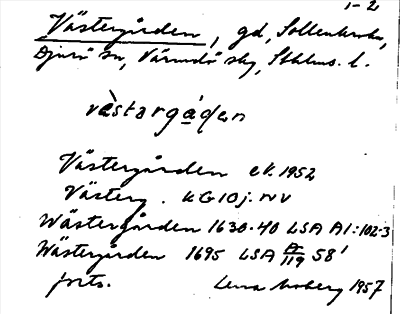 1-2
Västergården, gd, Sollenkroka,
Djurö sn, Värmdö skg, Sthlms. l.
västargǻdȩn
Västergården ek. 1952
Västerg. KG 10 j. NV
Wästergården 1630-40 LSA A1:102-3
Wästergården 1695 LSA A 119 58'
forts. Lena Moberg 1957